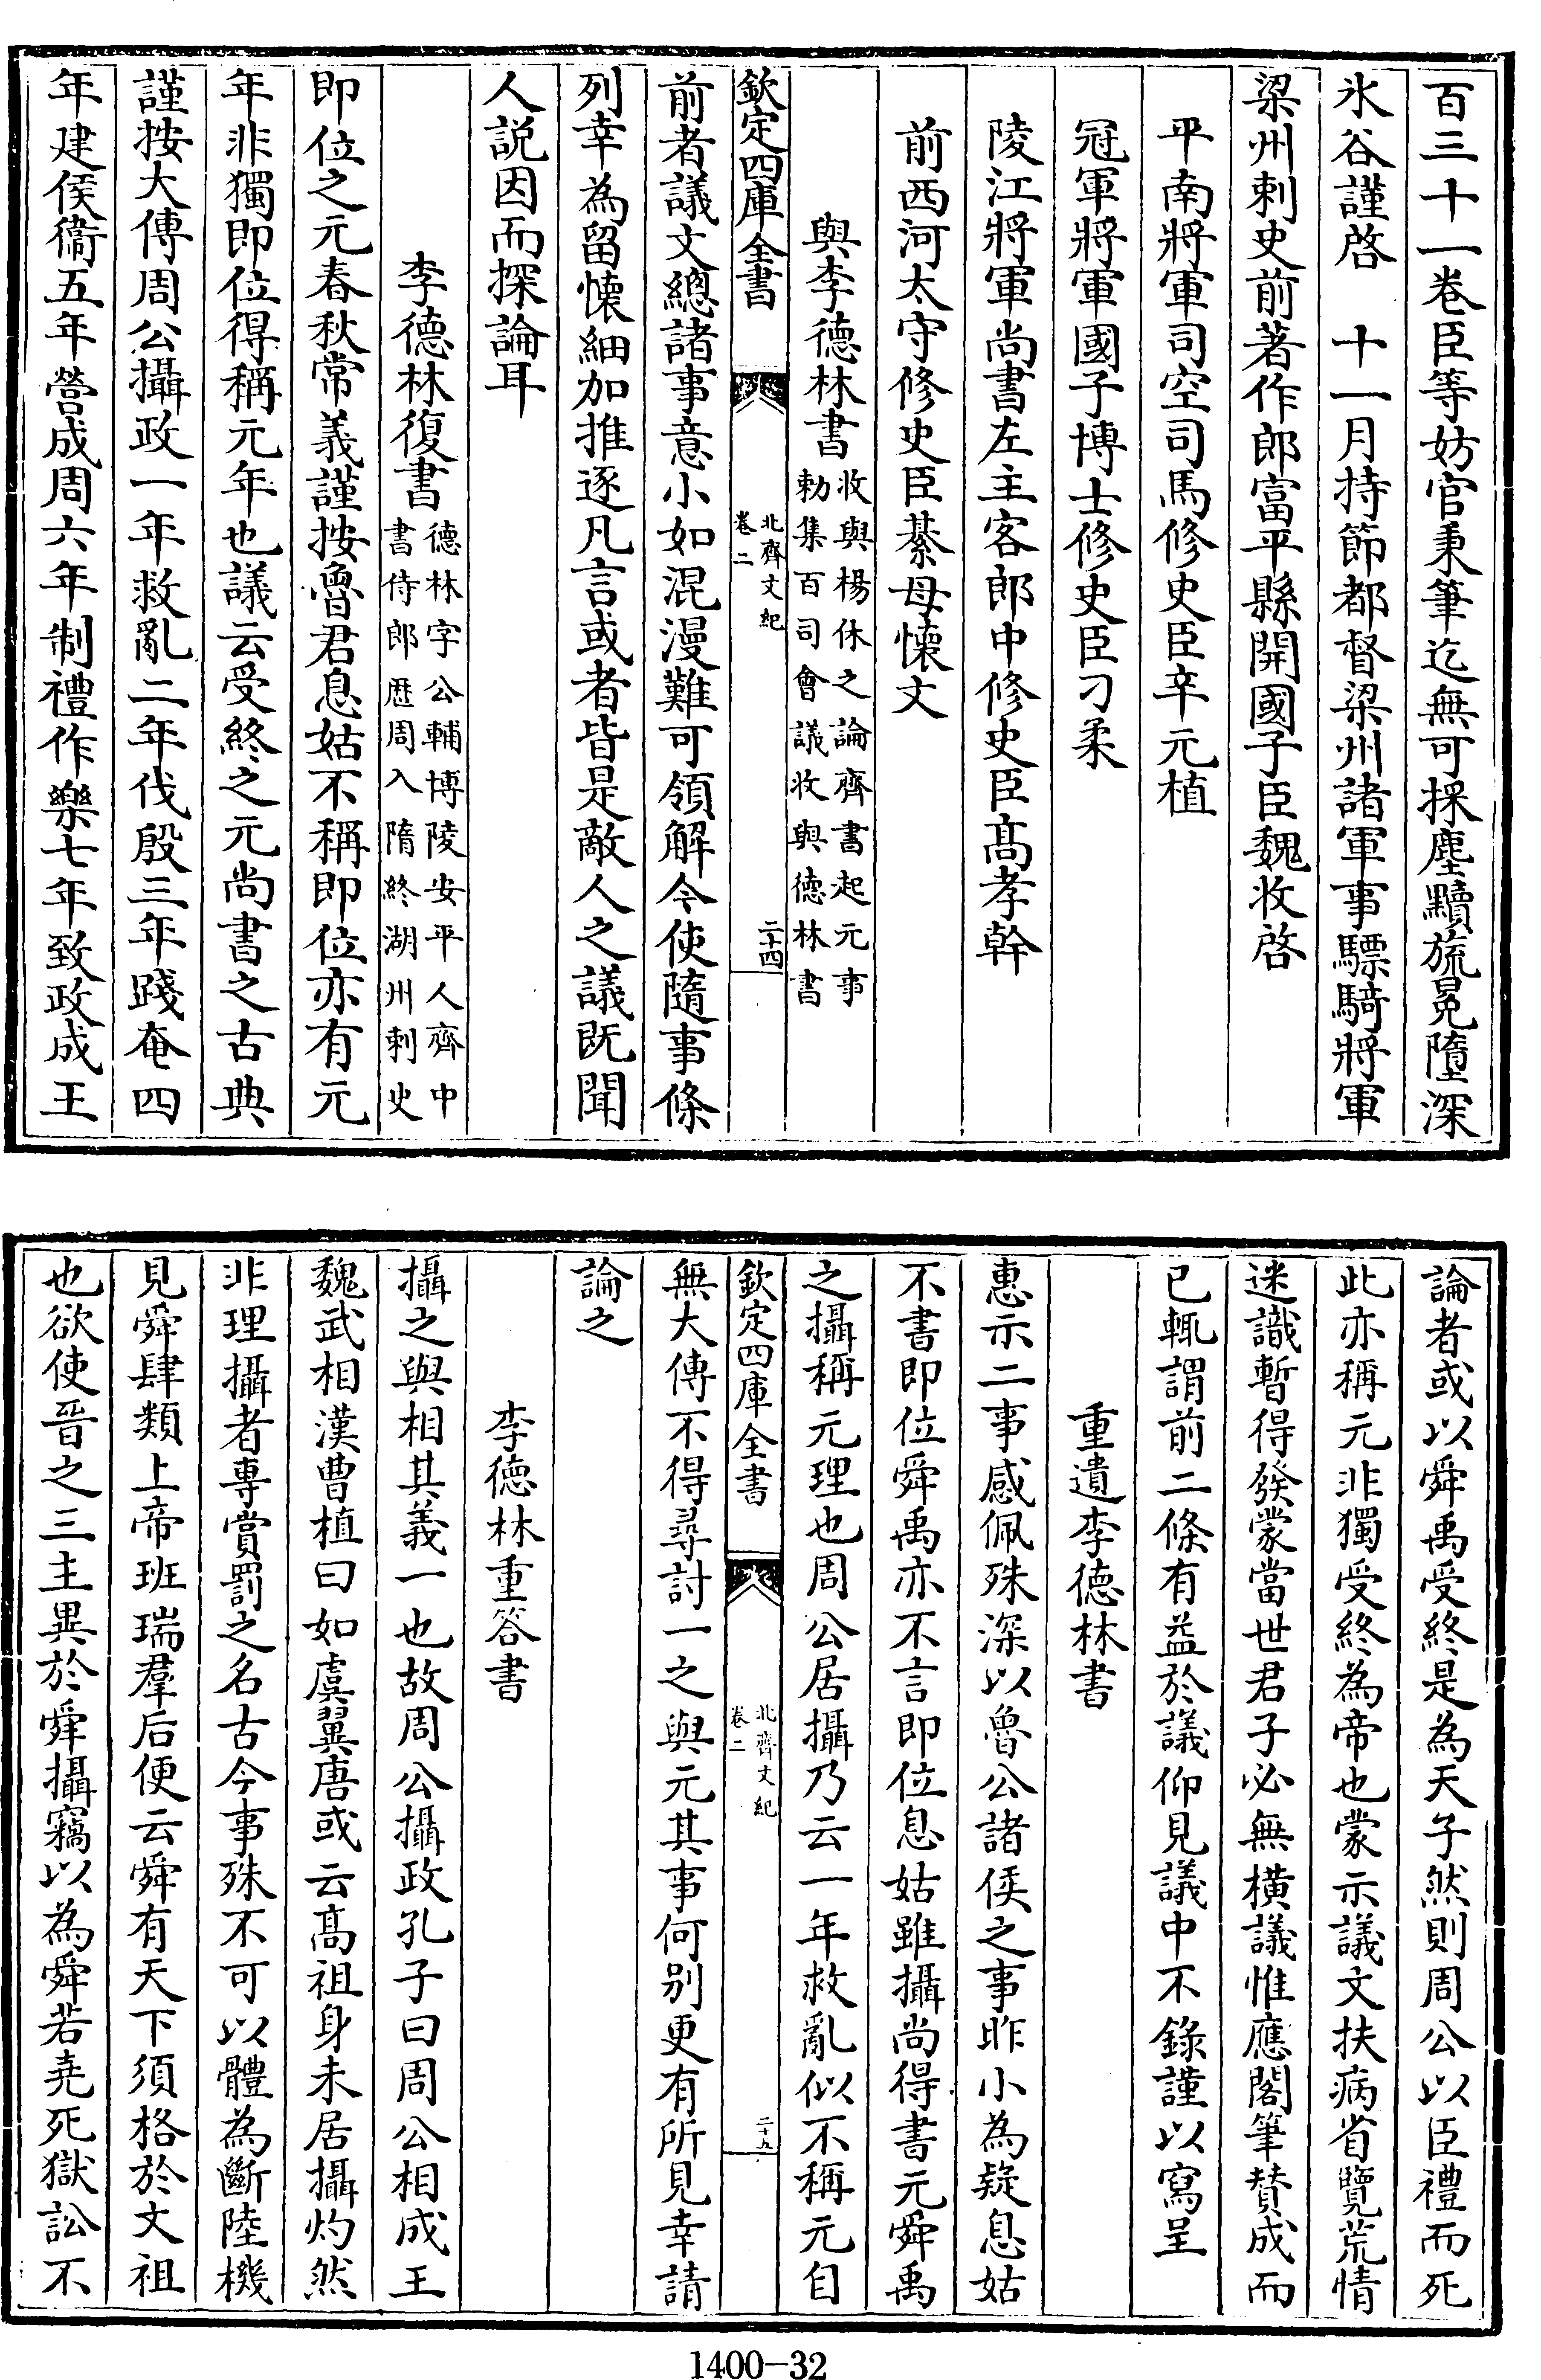 百三十一卷臣等妨官秉筆迄無可採塵黷旒冕墮深
氷谷謹啓　十一月持節都督梁州諸軍事驃騎將軍
梁州刺史前著作郎富平縣開國子臣魏收啓
平南將軍司空司馬修史臣辛元植
冠軍將軍國子博士修史臣刁柔
陵江將軍尚書左主客郎中修史臣髙孝幹
前西河太守修史臣綦母懷文
與李德林書收與楊休之論齊書起元事
勅集百司會議收與德林書
欽定四庫全書
北齊文紀
卷二
二十四
前者議文總諸事意小如混漫難可領解今使隨事條
列幸為留懷細加推逐凡言或者皆是敵人之議既聞
人説因而探論耳
李德林復書德林字公輔博陵安平人齊中
書侍郎歴周入隋終湖州刺史
即位之元春秋常義謹按魯君息姑不稱即位亦有元
年非獨即位得稱元年也議云受終之元尚書之古典
謹按大傳周公攝政一年救亂二年伐殷三年踐奄四
年建侯衞五年營成周六年制禮作樂七年致政成王
論者或以舜禹受終是為天子然則周公以臣禮而死
此亦稱元非獨受終為帝也蒙示議文扶病省覽荒情
迷識暫得發蒙當世君子必無橫議惟應閣筆賛成而
已輒謂前二條有益於議仰見議中不錄謹以寫呈
重遺李德林書
惠示二事感佩殊深以魯公諸侯之事昨小為疑息姑
不書即位舜禹亦不言即位息姑雖攝尚得書元舜禹
之攝稱元理也周公居攝乃云一年救亂似不稱元自
欽定四庫全書
北齊文紀
卷二
二十五
無大傳不得尋討一之與元其事何别更有所見幸請
論之
李德林重答書
攝之與相其義一也故周公攝政孔子曰周公相成王
魏武相漢曹植曰如虞翼唐或云髙祖身未居攝灼然
非理攝者專賞罰之名古今事殊不可以體為斷陸機
見舜肆類上帝班瑞羣后便云舜有天下須格於文祖
也欲使晉之三主異於舜攝竊以為舜若堯死獄訟不
1400-32